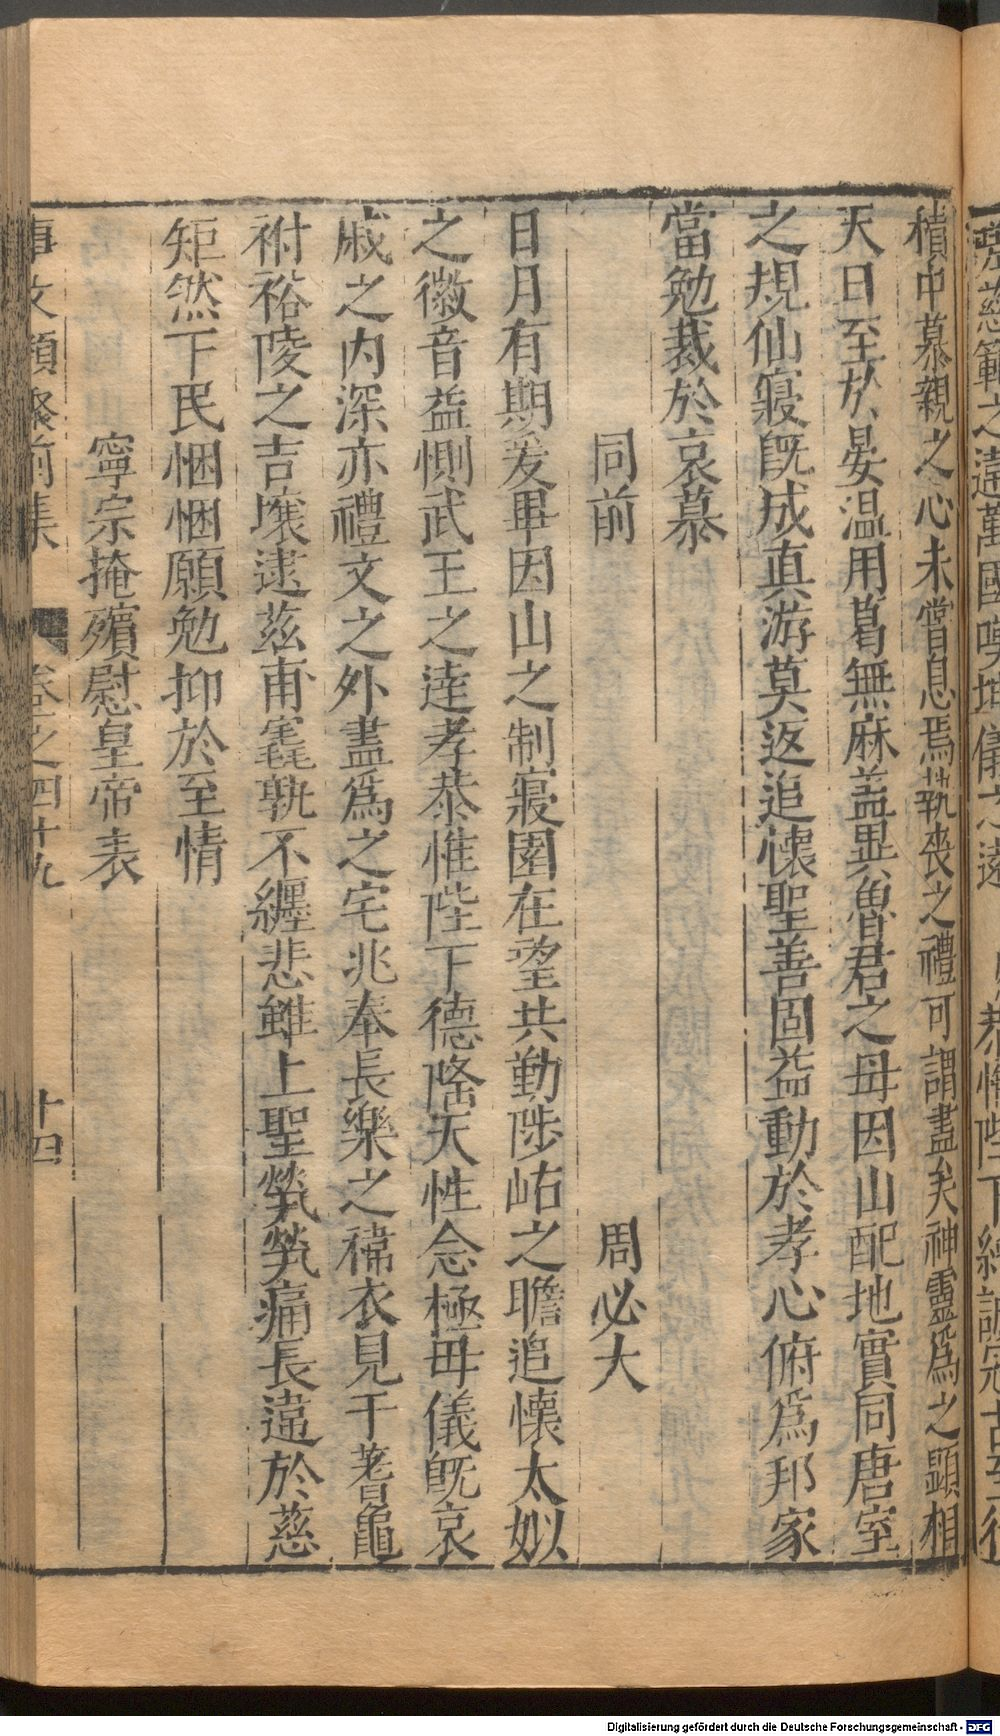 積中慕親之心未嘗息焉執喪之禮可謂盡矣神靈爲之顯相
天日至於晏温用葛無麻盖異魯君之毋因山配地實同唐室
之規仙寢旣成真游莫返追懷聖善固益動於孝心俯爲邦家
當勉裁於哀慕
同前 周必大
日月有期爰畢因山之制寢園在望共勤陟岵之瞻追懷太姒
之徽音益惻武王之逹孝恭惟陛下德隆天性念極毋儀旣哀
戚之内深亦禮文之外盡爲之宅兆奉長樂之褘衣見于蓍龜
祔裕陵之吉壤逮茲甫窆孰不纏悲雖上聖煢煢痛長違於慈
矩然下民悃悃願勉抑於至情
寧宗掩殯慰皇帝表
事文類聚前集 卷之四十九 十四
Digitalisierung gefördert durch die Deutsche Forschungsgemeinschaft - DFG